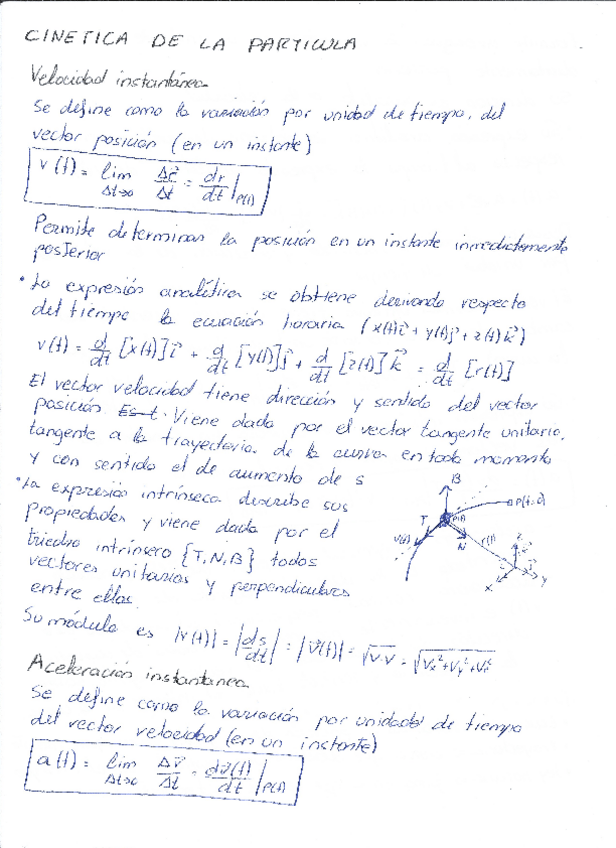 CINETICA DE LA PARTICULA
Velocidad instantánea
Se define como la variación por unidad de tiempo, del
vector posición (en un instante)
v(t) = lim Δt→0 Δr⃗/Δt = dr/dt |P(t)
Permite determinar la posición en un instante inmediatamente
posterior
• La expresión analítica se obtiene derivando respecto
del tiempo la ecuación horaria (x(t)i⃗ + y(t)j⃗ + z(t)k⃗)
v(t) = d/dt [x(t)]i⃗ + d/dt [y(t)]j⃗ + d/dt [z(t)]k⃗ = d/dt [r(t)]
El vector velocidad tiene dirección y sentido del vector
posición Es t. Viene dado por el vector tangente unitario,
tangente a la trayectoria de la curva en todo momento
y con sentido el de aumento de s
• La expresión intrínseca describe sus
propiedades y viene dada por el
triedro intrínseco {T, N, B} todos
vectores unitarios y perpendiculares
entre ellos.
B
T
P(t)
N
v(t)
r(t)
z
x
y
Su módulo es |v(t)| = |ds/dt| = |v⃗(t)| = √v·v = √Vx²+Vy²+Vz²
Aceleración instantanea
Se define como la variación por unidad de tiempo
del vector velocidad (en un instante)
a(t) = lim Δt→0 Δv⃗/Δt = dv⃗(t)/dt |P(t)